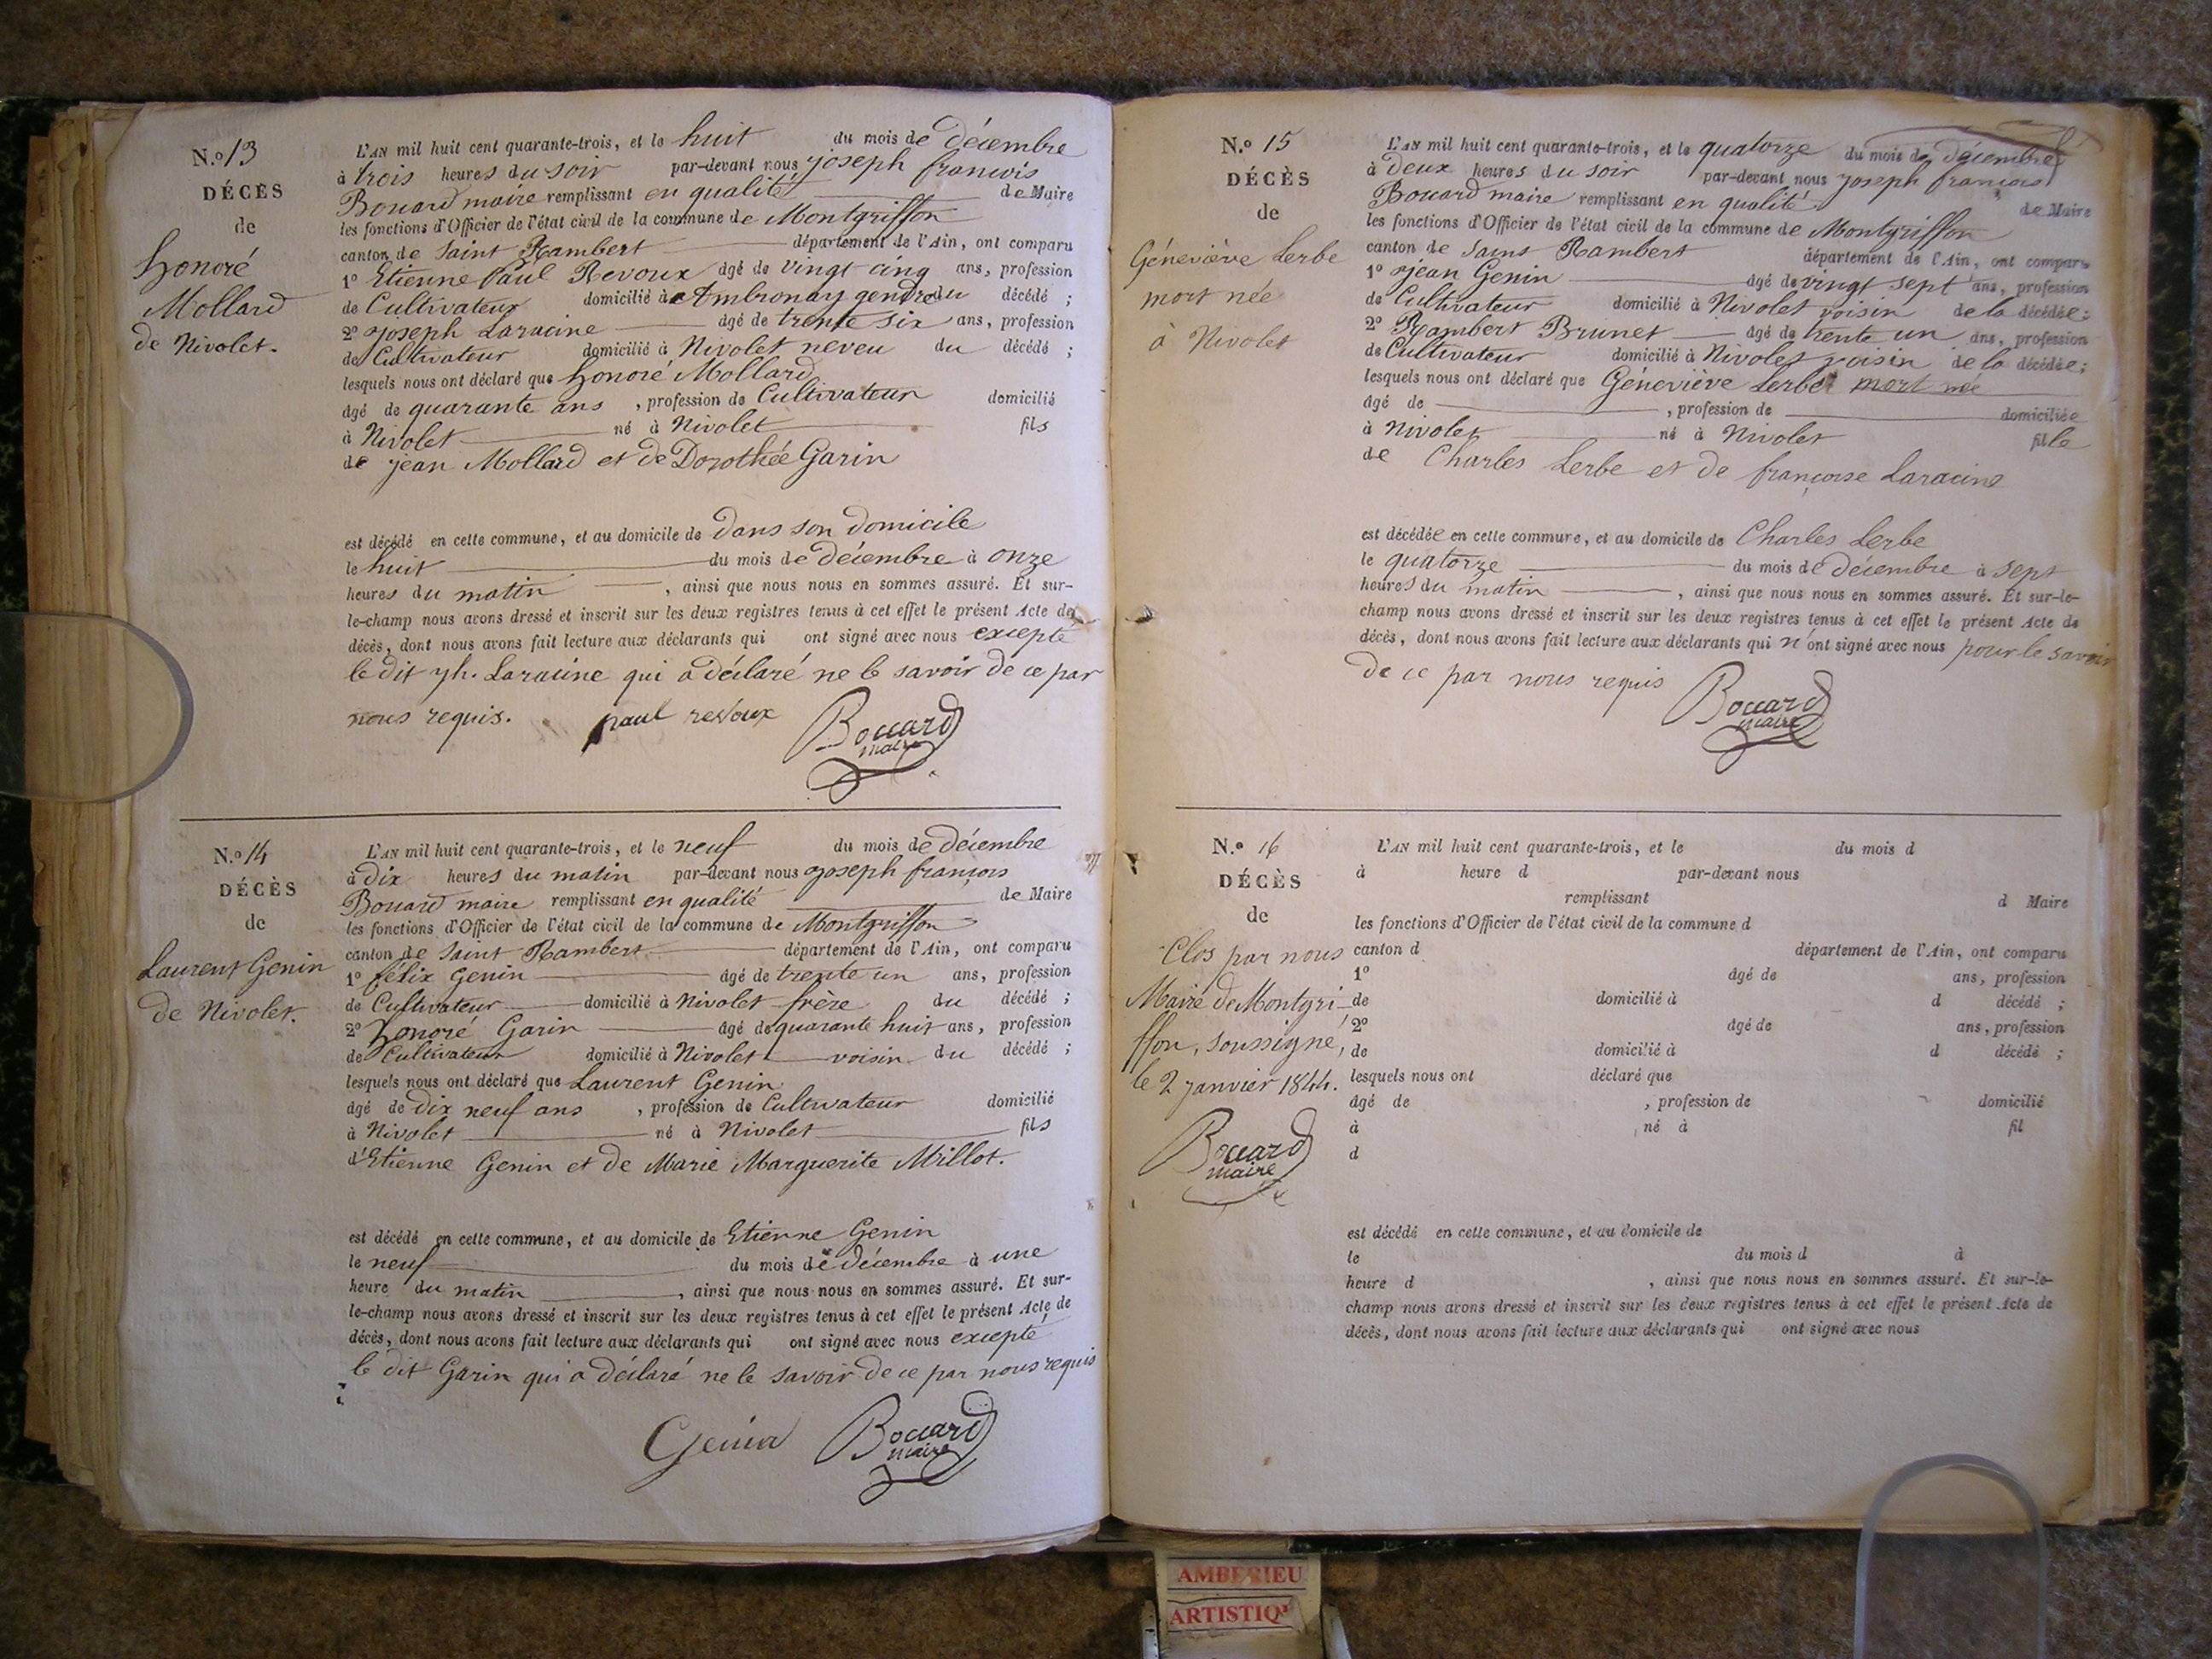 N.o 13
DÉCÈS
de
honoré
Mollard
de Nivolet.
L'AN mil huit cent quarante-trois, et le huit du mois de décembre
à trois heures du soir par-devant nous joseph francois
Bouard maire remplissant en qualité de Maire
les fonctions d'Officier de l'état civil de la commune de Montgriffon
canton de Saint Rambert département de l'Ain, ont comparu
1o Etienne Paul Revoux âgé de vingt cinq ans, profession
de Cultivateur domicilié à Ambronay gendre du décédé ;
2o joseph Laracine âgé de trente six ans, profession
de Cultivateur domicilié à Nivolet neveu du décédé ;
lesquels nous ont déclaré que honoré Mollard
âgé de quarante ans , profession de Cultivateur domicilié
à Nivolet né à Nivolet fils
de jean Mollard et de Dorothée Garin
est décédé en cette commune, et au domicile de dans son domicile
le huit du mois de décembre à onze
heures du matin , ainsi que nous nous en sommes assuré. Et sur-
le-champ nous avons dressé et inscrit sur les deux registres tenus à cet effet le présent Acte de
décès, dont nous avons fait lecture aux déclarants qui ont signé avec nous excepté
le dit jh. Laracine qui a déclaré ne le savoir de ce par
nous requis. paul revoux Bouard
maire
N.o 14
DÉCÈS
de
Laurent Genin
de Nivolet.
L'AN mil huit cent quarante-trois, et le neuf du mois de décembre
à dix heures du matin par-devant nous joseph françois
Bouard maire remplissant en qualité de Maire
les fonctions d'Officier de l'état civil de la commune de Montgriffon
canton de Saint Rambert département de l'Ain, ont comparu
1o félix Genin âgé de trente un ans, profession
de Cultivateur domicilié à Nivolet frère du décédé ;
2o honoré Garin âgé de quarante huit ans, profession
de Cultivateur domicilié à Nivolet voisin du décédé ;
lesquels nous ont déclaré que Laurent Genin
âgé de dix neuf ans , profession de Cultivateur domicilié
à Nivolet né à Nivolet fils
d'Etienne Genin et de Marie Marguerite Millot.
est décédé en cette commune, et au domicile de Etienne Genin
le neuf du mois de décembre à une
heure du matin , ainsi que nous nous en sommes assuré. Et sur-
le-champ nous avons dressé et inscrit sur les deux registres tenus à cet effet le présent Acte de
décès, dont nous avons fait lecture aux déclarants qui ont signé avec nous excepté
le dit Garin qui a déclaré ne le savoir de ce par nous requis
Genin Bouard
maire
N.o 15
DÉCÈS
de
Géneviève Lerbe
mort née
à Nivolet
L'AN mil huit cent quarante-trois, et le quatorze du mois de décembre
à deux heures du soir par-devant nous joseph françois
Bouard maire remplissant en qualité de Maire
les fonctions d'Officier de l'état civil de la commune de Montgriffon
canton de Saint Rambert département de l'Ain, ont comparu
1o jean Genin âgé de vingt sept ans, profession
de Cultivateur domicilié à Nivolet voisin de la décédée ;
2o Rambert Brunet âgé de trente un ans, profession
de Cultivateur domicilié à Nivolet voisin de la décédée ;
lesquels nous ont déclaré que Géneviève Lerbe mort née
âgé de , profession de domiciliée
à Nivolet né à Nivolet fille
de Charles Lerbe et de françoise Laracine
est décédée en cette commune, et au domicile de Charles Lerbe
le quatorze du mois de décembre à sept
heures du matin , ainsi que nous nous en sommes assuré. Et sur-le-
champ nous avons dressé et inscrit sur les deux registres tenus à cet effet le présent Acte de
décès, dont nous avons fait lecture aux déclarants qui n'ont signé avec nous pour le savoir
de ce par nous requis Bouard
maire
N.o 16
DÉCÈS
de
Clos par nous
Maire de Montgri-
ffon, soussigné,
le 2 janvier 1844.
Bouard
maire
L'AN mil huit cent quarante-trois, et le du mois d
à heure d par-devant nous
remplissant d Maire
les fonctions d'Officier de l'état civil de la commune d
canton d département de l'Ain, ont comparu
1o âgé de ans, profession
de domicilié à d décédé ;
2o âgé de ans, profession
de domicilié à d décédé ;
lesquels nous ont déclaré que
âgé de , profession de domicilié
à né à fil
d
est décédé en cette commune, et au domicile de
le du mois d à
heure d , ainsi que nous nous en sommes assuré. Et sur-le-
champ nous avons dressé et inscrit sur les deux registres tenus à cet effet le présent Acte de
décès, dont nous avons fait lecture aux déclarants qui ont signé avec nous
AMBERIEU
ARTISTIQ